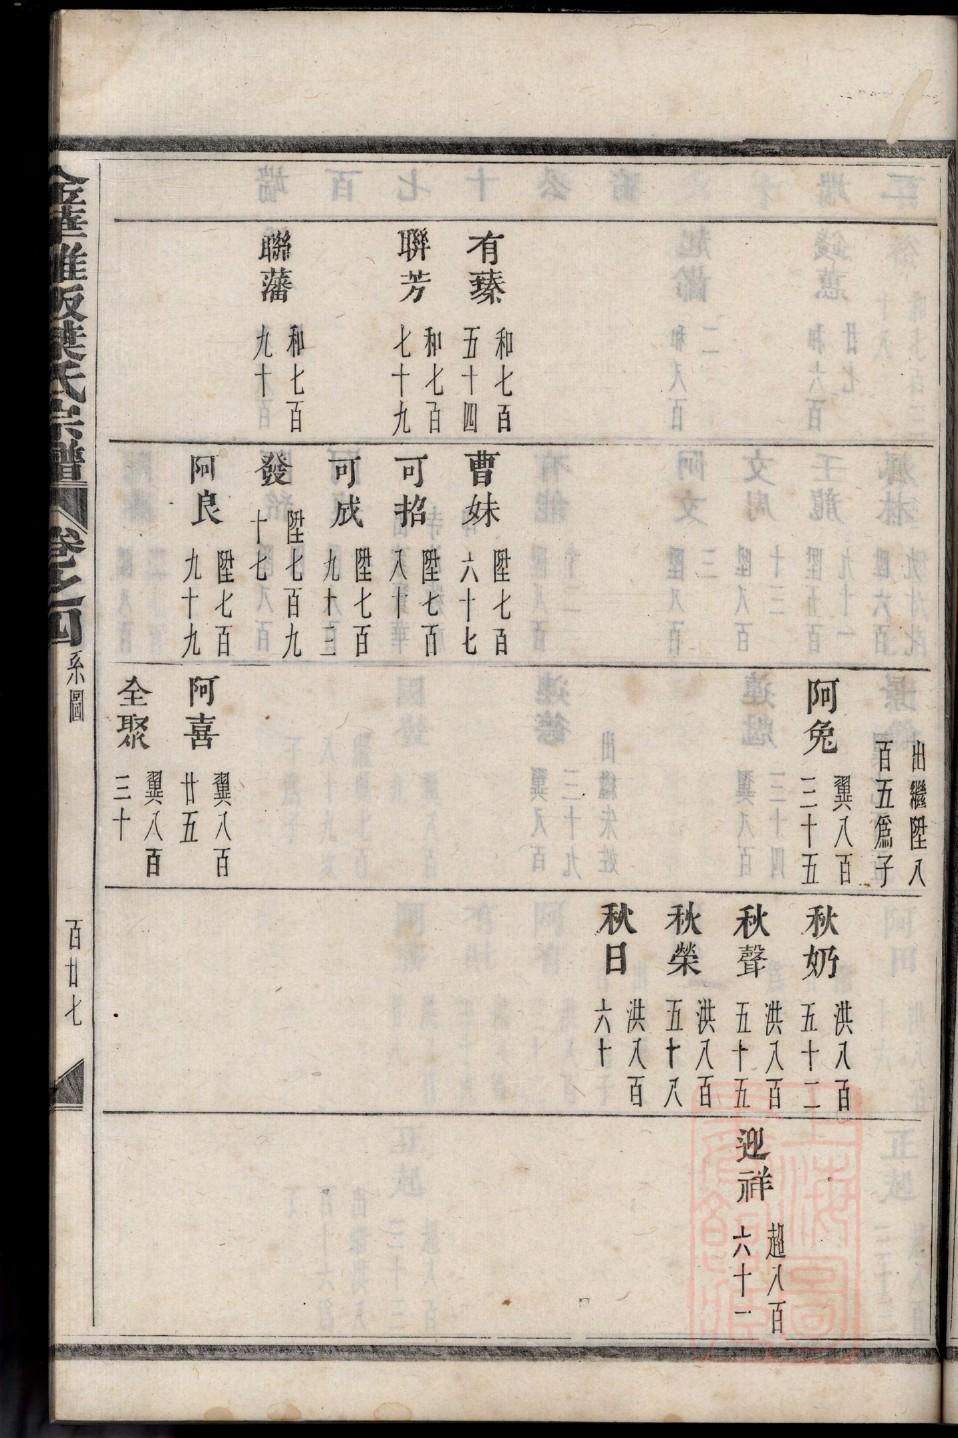 有臻 和七百五十四
聯芳 和七百七十九
聯藩 和七百九十
曹妹 陞七百六十七
可招 陞七百八十
可成 陞七百九十三
發 陞七百九十七
阿良 陞七百九十九
出繼陞八百五爲子
阿兔 翼八百三十五
阿喜 翼八百廿五
全聚 翼八百三十
秋奶 洪八百五十二
秋聲 洪八百五十五
秋榮 洪八百五十八
秋日 洪八百六十
迎祥 趙八百六十一
葉氏宗譜 卷之四 系圖 百廿七